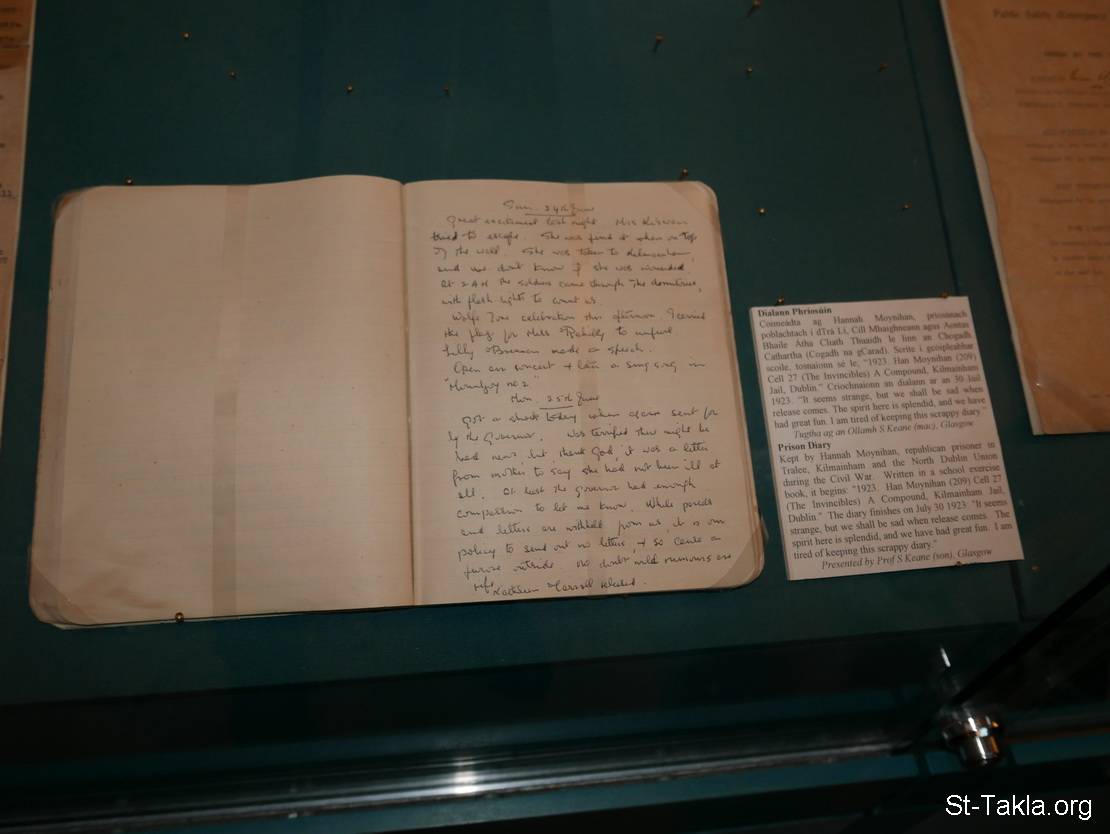 Sun. 24th June
Great excitement last night. Miss
tried to escape. She was fired at when on top
of the wall. She was taken to Kilmainham,
and we don't know if she was wounded.
At 2 AM the soldiers came through the dormitories,
with flash-lights to count us.
Wolfe Tone celebration this afternoon. I carried
the flag for Miss O'Rahilly to unfurl
Lily O'Brennan made a speech.
Open air concert + later a sing song in
"Mountjoy no 2"
Mon. 25th June
Got a shock today when again sent for
by the Governor. Was terrified there might be
bad news but, thank God, it was a letter
from mother to say she had not been ill at
all. At least the governor had enough
compassion to let me know. While parcels
and letters are withheld from us, it is our
policy to send out no letters, + so cause a
furore outside. No doubt wild rumours are
rife. Kathleen O'Carroll released.
Dialann Phríosúin
Coimeádta ag Hannah Moynihan, príosúnach
poblachtach i dTrá Lí, Cill Mhaighneann agus Aontas
Bhaile Átha Cliath Thuaidh le linn an Chogadh
Cathartha (Cogadh na gCarad). Scríte i gcóipleabhar
scoile, tosnaíonn sé le, "1923. Han Moynihan (209)
Cell 27 (The Invincibles) A Compound, Kilmainham
Jail, Dublin." Críochnaíonn an dialann ar an 30 Iúil
1923. "It seems strange, but we shall be sad when
release comes. The spirit here is splendid, and we have
had great fun. I am tired of keeping this scrappy diary."
Tugtha ag an Ollamh S Keane (mac), Glasgow
Prison Diary
Kept by Hannah Moynihan, republican prisoner in
Tralee, Kilmainham and the North Dublin Union
during the Civil War. Written in a school exercise
book, it begins: "1923. Han Moynihan (209) Cell 27
(The Invincibles) A Compound, Kilmainham Jail,
Dublin." The diary finishes on July 30 1923. "It seems
strange, but we shall be sad when release comes. The
spirit here is splendid, and we have had great fun. I am
tired of keeping this scrappy diary."
Presented by Prof S Keane (son), Glasgow
Public Safety (Emergency
St-Takla.org